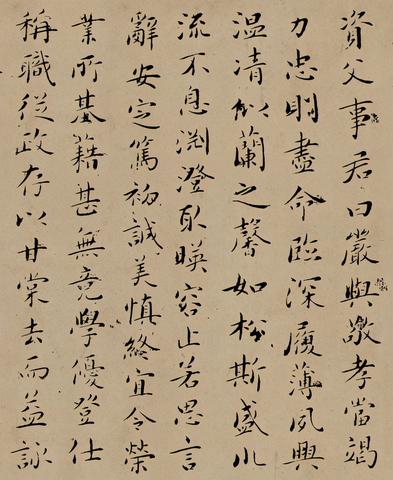 資父事君曰嚴與敬孝當竭
力忠則盡命臨深履薄夙興
温清似蘭之馨如松斯盛川
流不息渊澄取暎容止若思言
辭安定篤初誠美慎終宜令榮
業所基籍甚無竟學優登仕
稱職從政存以甘棠去而益詠